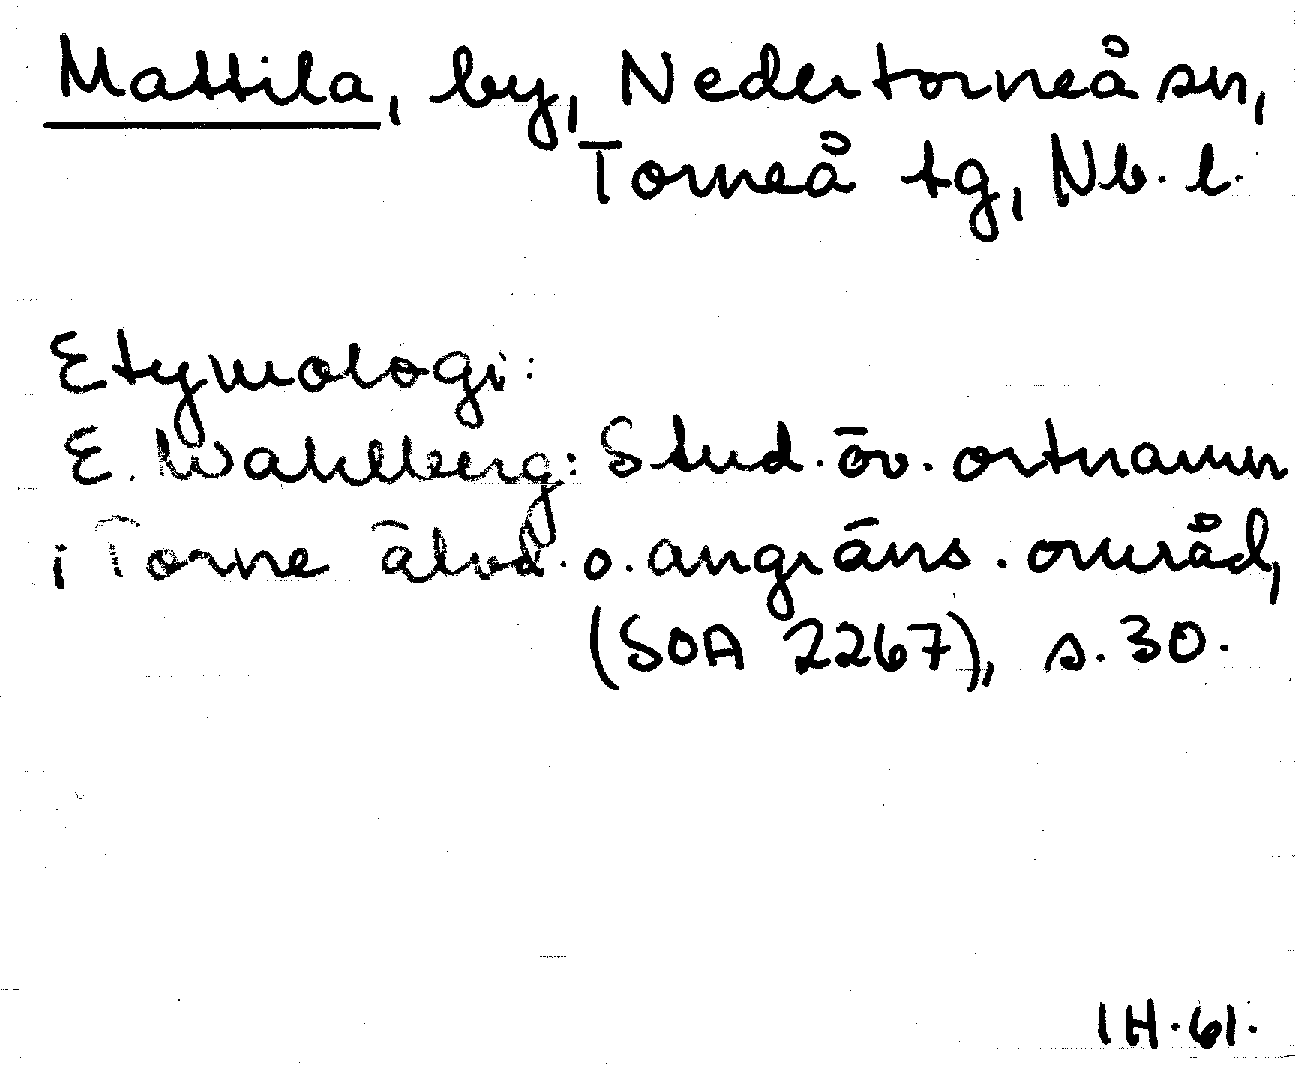 Mattila, by, Nedertorneå sn,
Torneå tg, Nb. l.
Etymologi:
E. Wahlberg: Stud. öv. ortnamn
i Torne älvd. o. angräns. område,
(SOA 2267), s. 30.
IH. 61.